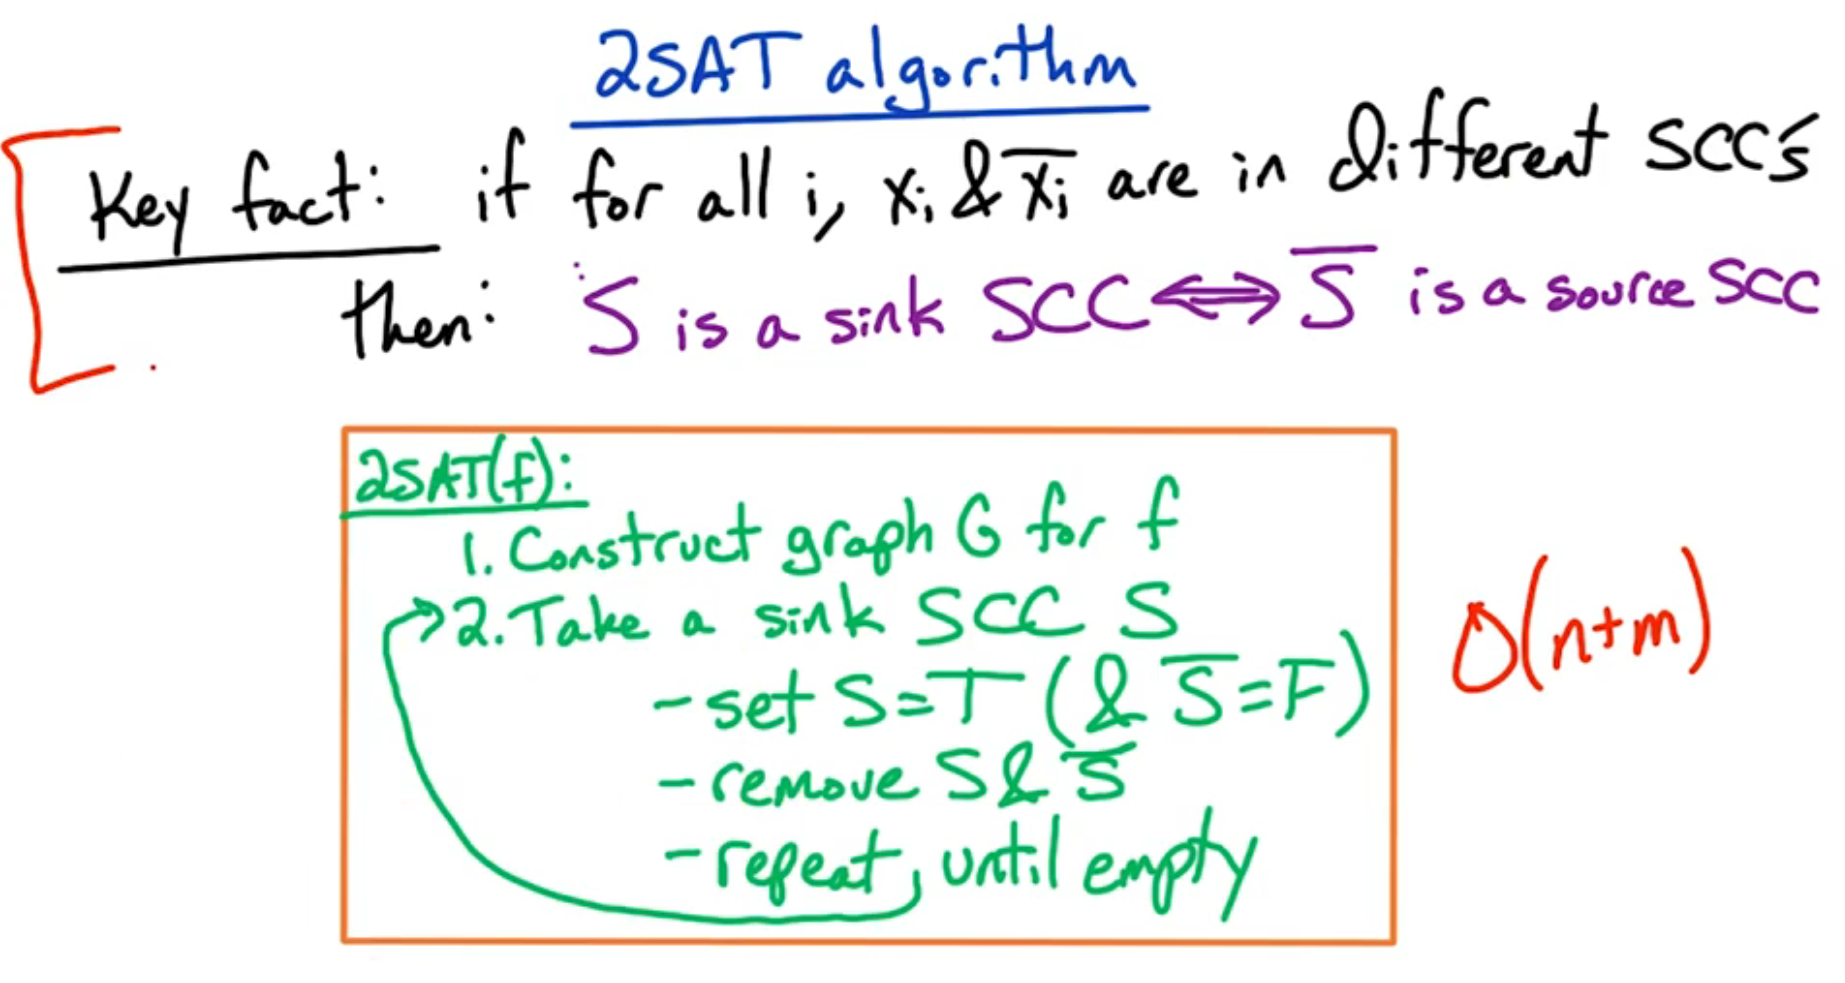 2SAT algorithm
Key fact: if for all i, xᵢ & x̅ᵢ are in different SCC's
then: S is a sink SCC ⟺ S̅ is a source SCC
2SAT(f):
1. Construct graph G for f
2. Take a sink SCC S
- set S=T (& S̅=F)
- remove S & S̅
- repeat until empty
O(n+m)